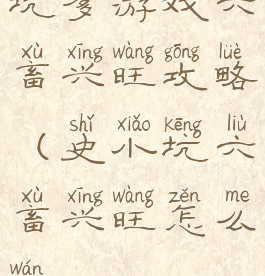 坑爹游戏六
xù xīng wàng gōng lüè
畜兴旺攻略
shǐ xiǎo kēng liù
(史小坑六
xù xīng wàng zěn me
畜兴旺怎么
wán